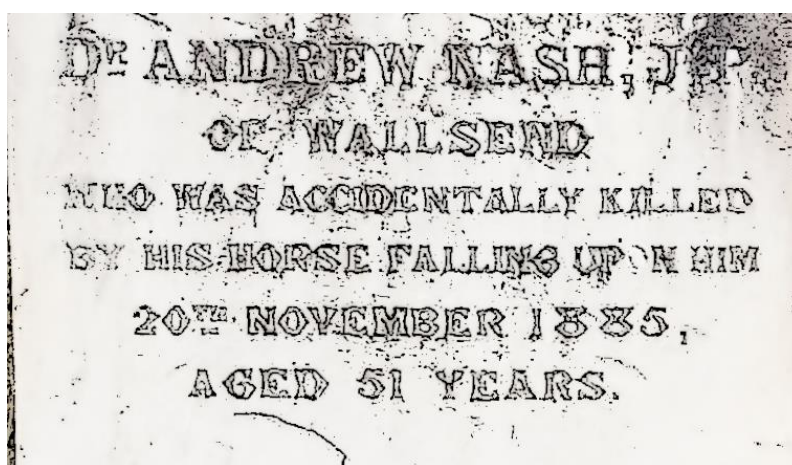 Dr ANDREW NASH, J.P.
OF WALLSEND
WHO WAS ACCIDENTALLY KILLED
BY HIS HORSE FALLING UPON HIM
20TH NOVEMBER 1885,
AGED 51 YEARS.